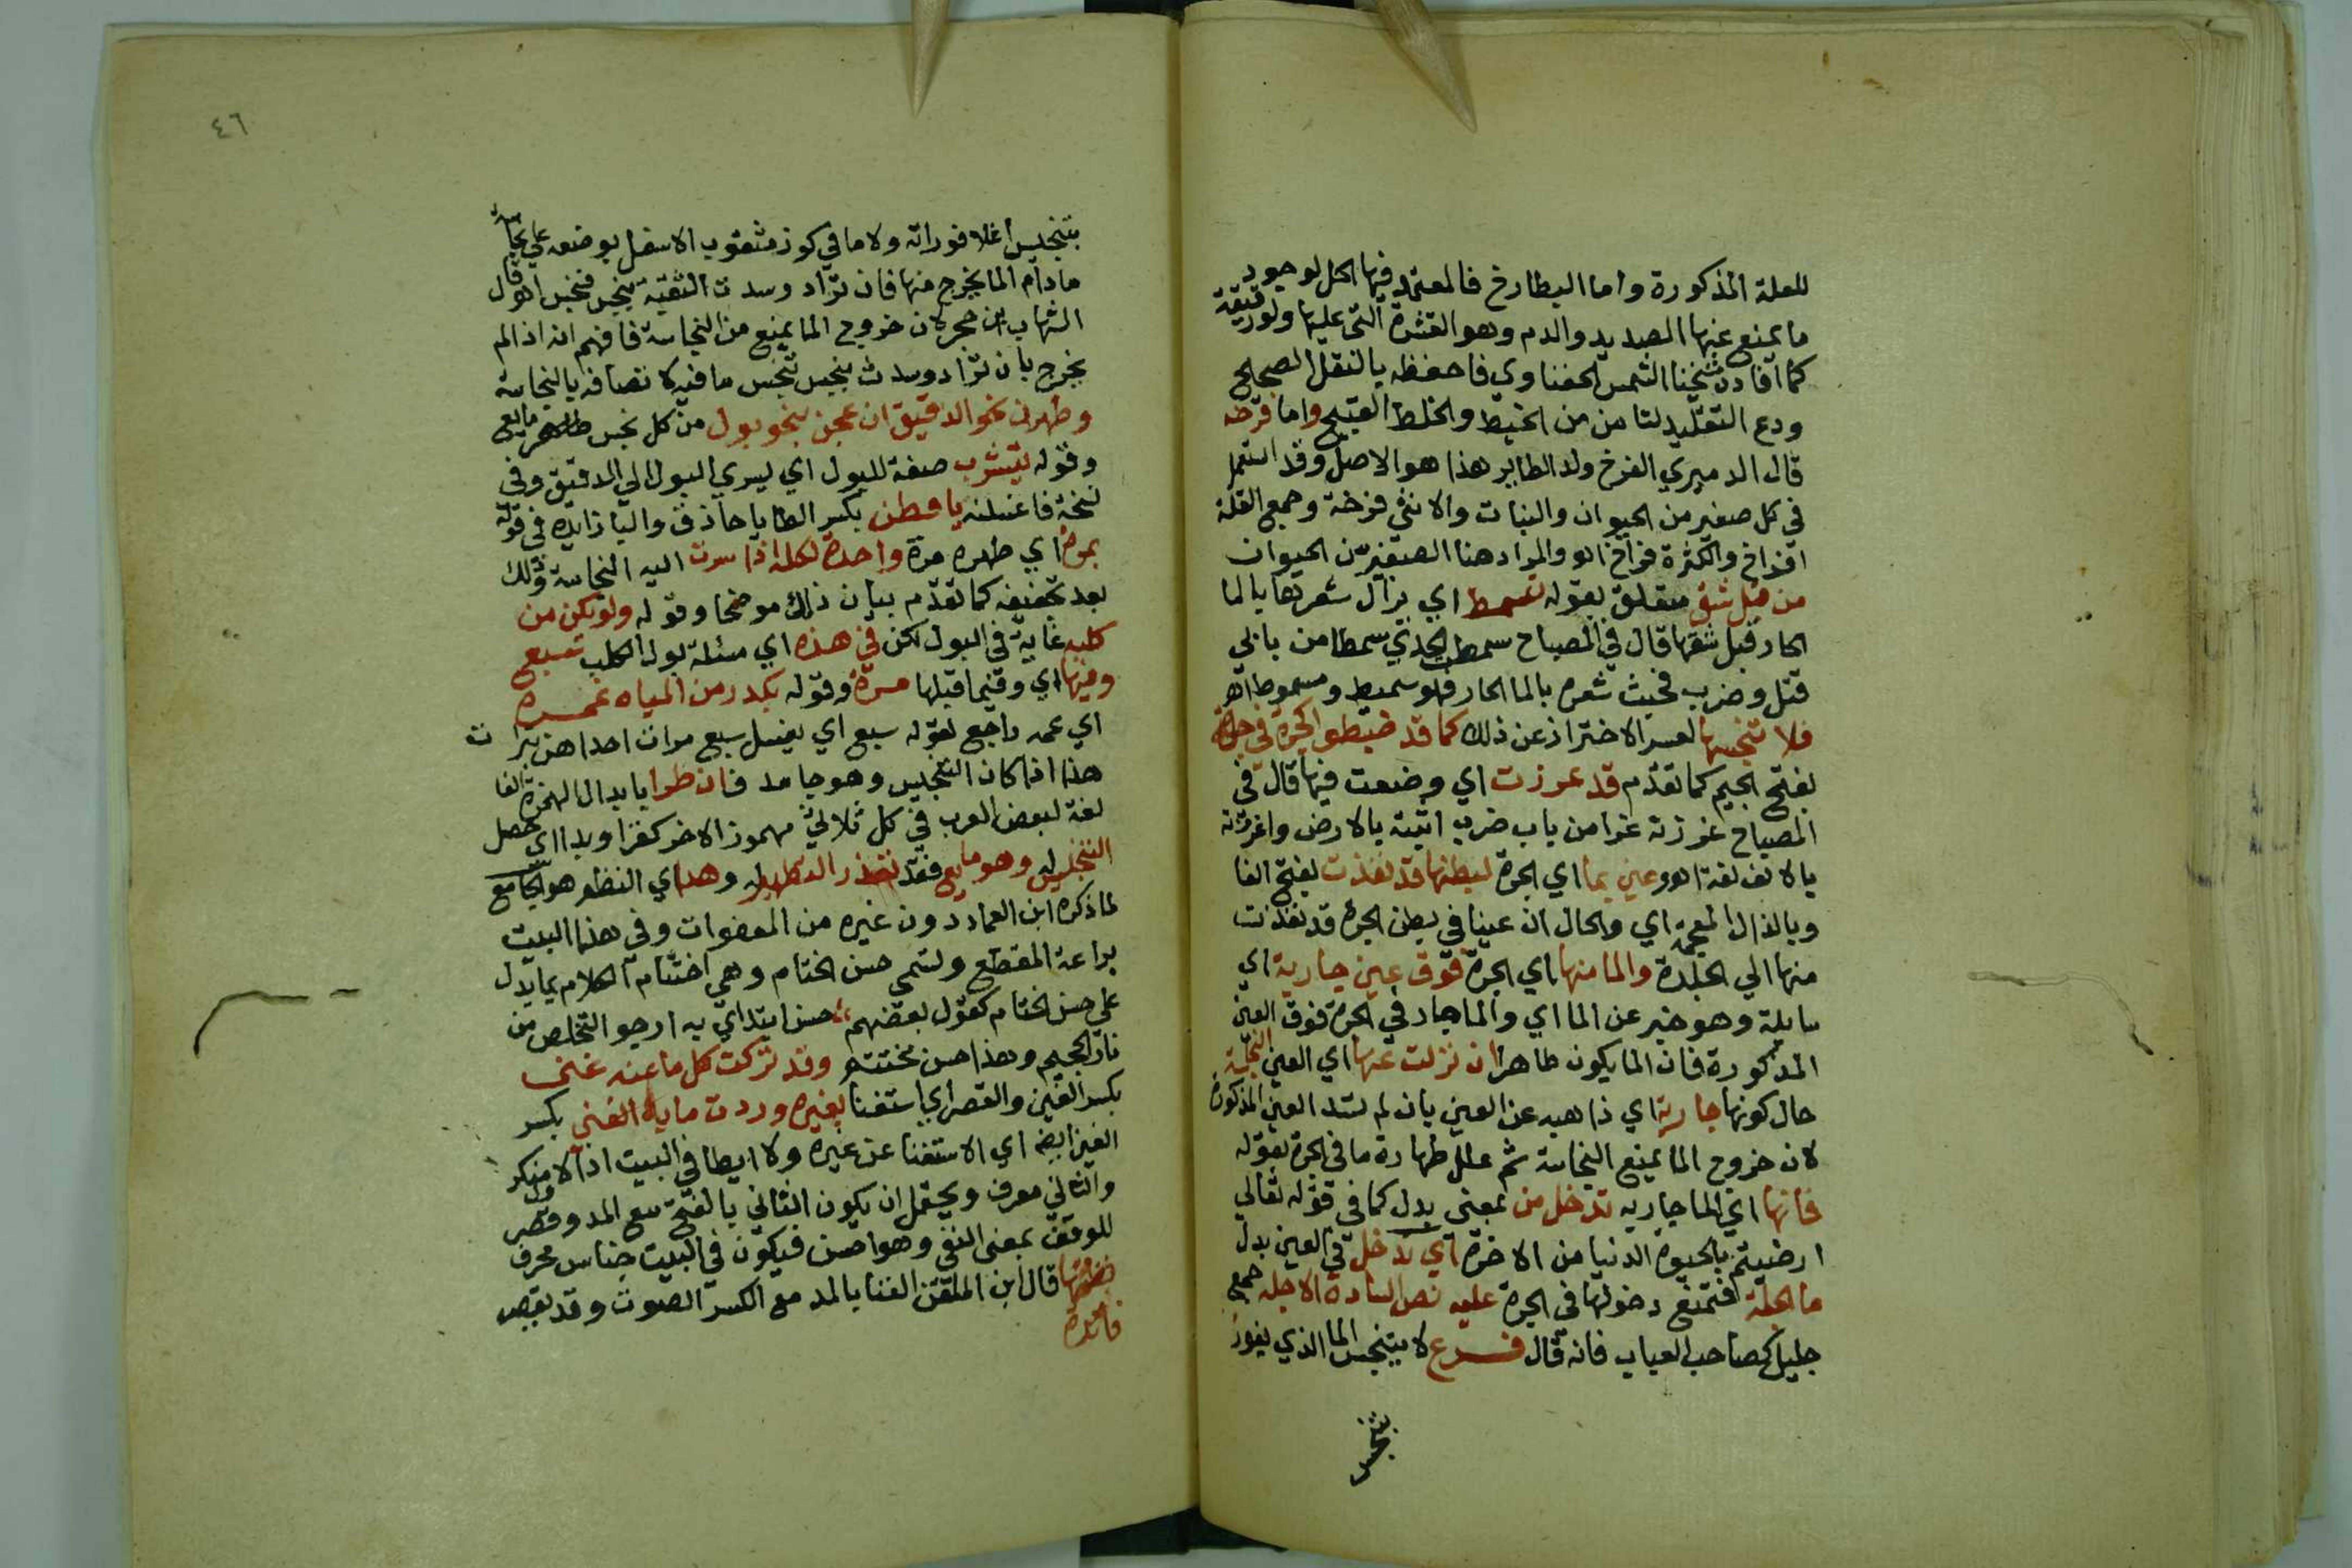 للعلة المذكورة واما البطارخ فالمعتمد فيها الحل لوجود
ما يمنع عنها الصديد والدم وهو القشرة التي عليها ولو رقيقة
كما افادن شيخنا الشمس الحفناوي فاحفظه بالنقل الصحيح
ودع التقليد لتامن من الخبط والخلط القبيح واما فرخه
قال الدميري الفرخ ولد الطاير هذا هو الاصل وقد استعمل
في كل صغير من الحيوان والنبات والانثى فرخة وجمع القلة
افراخ والكثرة فراخ اهو والمراد هنا الصغير من الحيوان
من قبل شق متعلق بقوله تسمط اي يزال شعرتها بالما
الحار قبل شقها قال في المصباح سمطت الجدي سمطا من بابي
قتل وضرب نحيت شعره بالما الحار فهو سميط ومسموط اهو
فلا تنجسها لعسر الاحتراز عن ذلك كما قد ضبطوا لجرة في جلدة
بفتح الجيم كما تقدم قد غرزت اي وضعت فيها قال في
المصباح غرزته غرزا من باب ضرب اثبته بالارض واغرزته
بالالف لغة اهو وعين بما اي الجرة لبطنها قد نفذت بفتح الفا
وبالذال المعجمة اي والحال ان عينا في بطن الجرة قد نفذت
منها الي الجلدة والما منها اي الجرة فوق عين جارية اي
سايلة وهو خبر عن الما اي والما جار في الجرة فوق العين
المذكورة فان الما يكون طاهرا ان نزلت عنها اي العين النجسة
حال كونها جارية اي ذاهبه عن العين بان لم تسد العين المذكورة
لان خروج الما يمنع النجاسة ثم علل طهارة ما في الجرة بقوله
فانها اي الما جاريه تدخل من بمعنى بدل كما في قوله تعالي
ارضيتم بالحيوة الدنيا من الاخرة اي تدخل في العين بدل
ما الجلة فتمنع دخولها في الجرة عليه نص السادة الاجله جمع
جليل كصاحب العباب فانه قال فرع لا يتنجس الما الذي يفور
بتنجس
٤٦
بتنجيس اغلا فوراته ولا ما في كوز مثقوب الاسفل بوضعه على نجاسة
ما دام الما يخرج منها فان تراد وسدت الثقبة بنجس فنجس اهو قال
الشهاب ابن حجر لان خروج الما يمنع من النجاسة فافهم انه اذا لم
يخرج بان تراد وسدت بنجس تنجس ما فيه لاتصافه بالنجاسة
وطهرن نحو الدقيق ان عجن بنحو بول من كل نجس مايع
وقوله يتشرب صفة للبول اي يسري البول الي الدقيق وفي
نسخة فاغسلنه يا فطن بكسر الطا يا حاذق واليا زايدة في قوله
بمرة اي طهره مرة واحدة لكله اذا سرت اليه النجاسة وذلك
بعد تجفيفه كما تقدم بيان ذلك موضحا وقوله ولو يكن من
كلبه غاية في البول لكن في هذه اي مسئلة بول الكلب تسبع
وفيها اي وفيما قبلها مرة وقوله بكدر من المياه غمره
اي عمه راجع لقوله سبع اي يغسل سبع مرات احداهن بتراب
هذا اذا كان التنجيس وهو جامد فان طرا بابدال الهمزة الفا
لغة لبعض العرب في كل ثلاثي مهموز الاخر كقرا وبدا اي حصل
التنجيس له وهو مايع فقد تعذر التطهير له وهذا اي النظم هو الجامع
لما ذكره ابن العماد دون غيره من المعفوات وفي هذا البيت
براعة المقطع وتسمى حسن الختام وهي اختتام الكلام بما يدل
على حسن الختام كقول بعضهم حسن ابتداي به ارجو التخلص من
نار الجحيم وهذا حسن مختتم وقد تركت كل ما عنه غنى
بكسر الغين والقصر اي استغنا بغيره وردت ما به الغني بكسر
الغين ايضا اي الاستغنا عن غيره ولا ايطا في البيت اذ الاول منكر
والثاني معرف ويحتمل ان يكون الثاني بالفتح مع المد وقصر
للوقف بمعنى النفع وهو احسن فيكون في البيت جناس محرف
نظمتها قال ابن الملقن الغنا بالمد مع الكسر الصوت وقد يقصر
فائدة